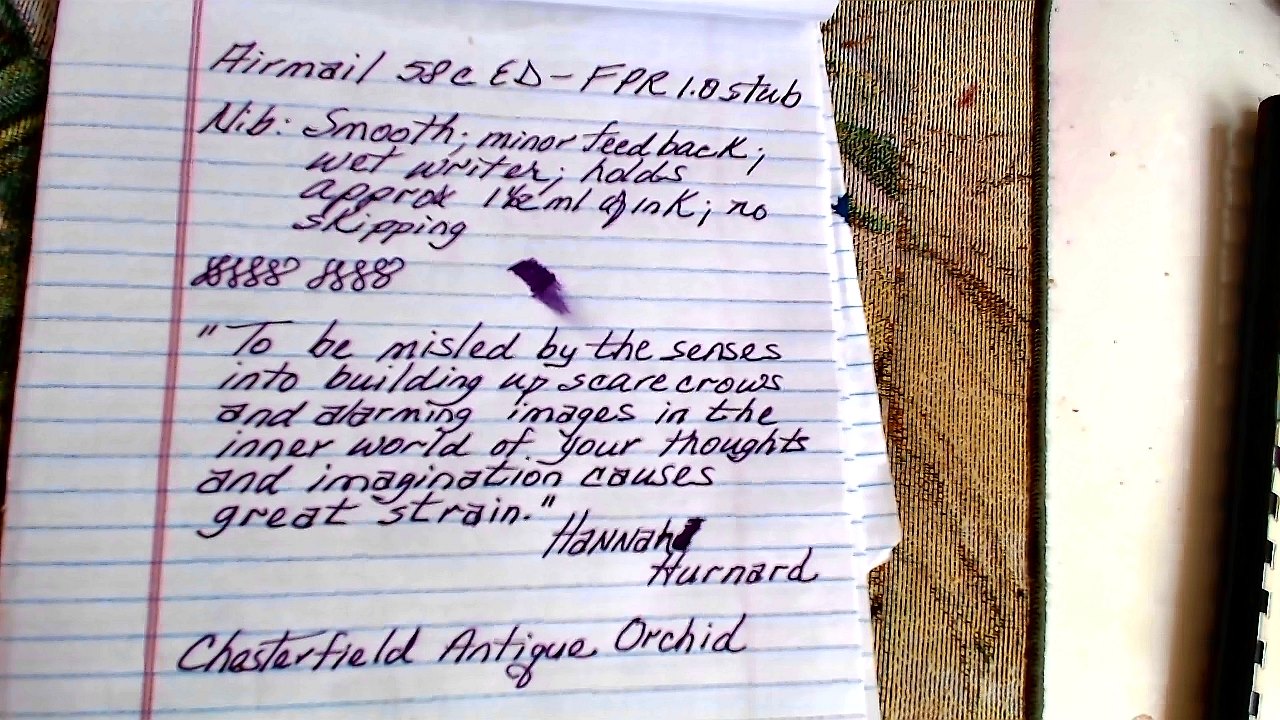 Airmail 58c ED - FPR 1.0 stub
Nib: Smooth; minor feedback;
wet writer; holds
approx 1½ ml of ink; no
skipping
"To be misled by the senses
into building up scarecrows
and alarming images in the
inner world of your thoughts
and imagination causes
great strain."
Hannah
Hurnard
Chesterfield Antique Orchid